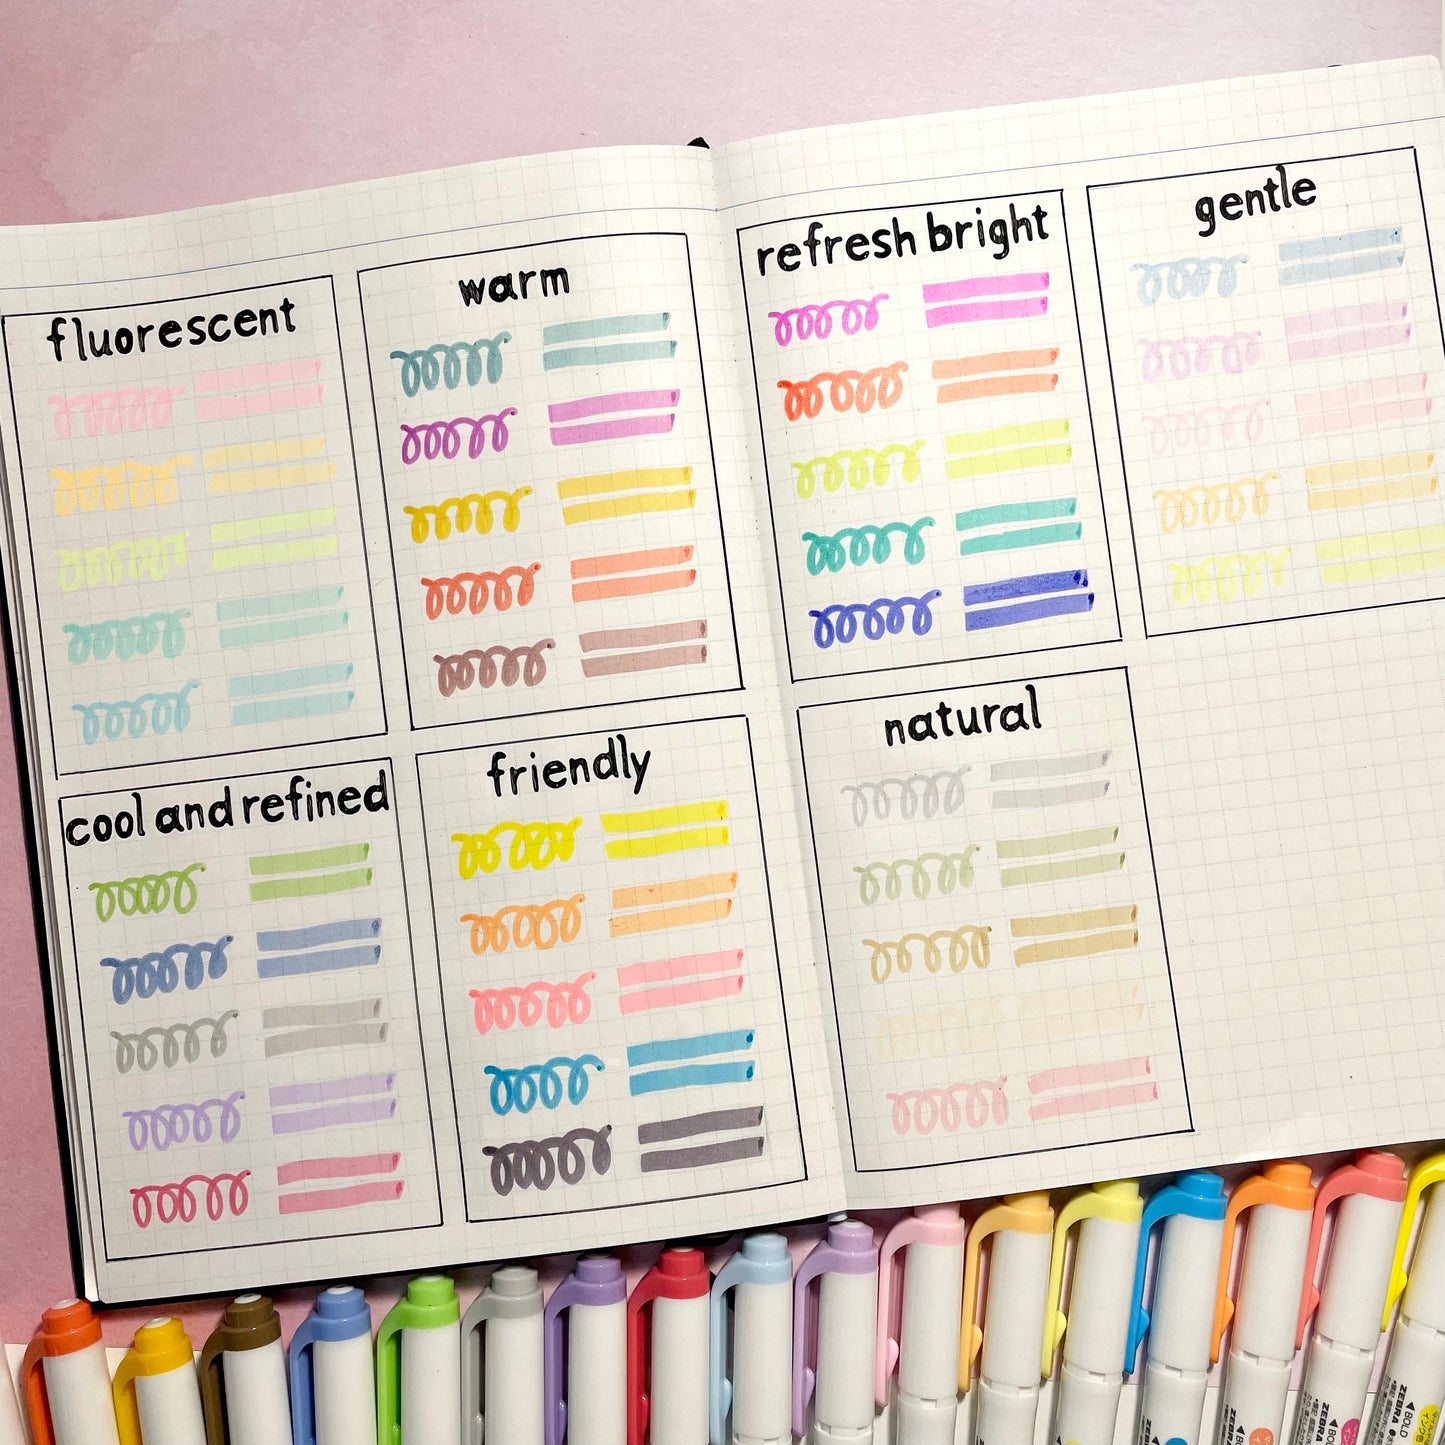 fluorescent
warm
cool and refined
friendly
refresh bright
gentle
natural
ZEBRA
BOLD
ZEBRA
BOLD
ZEBRA